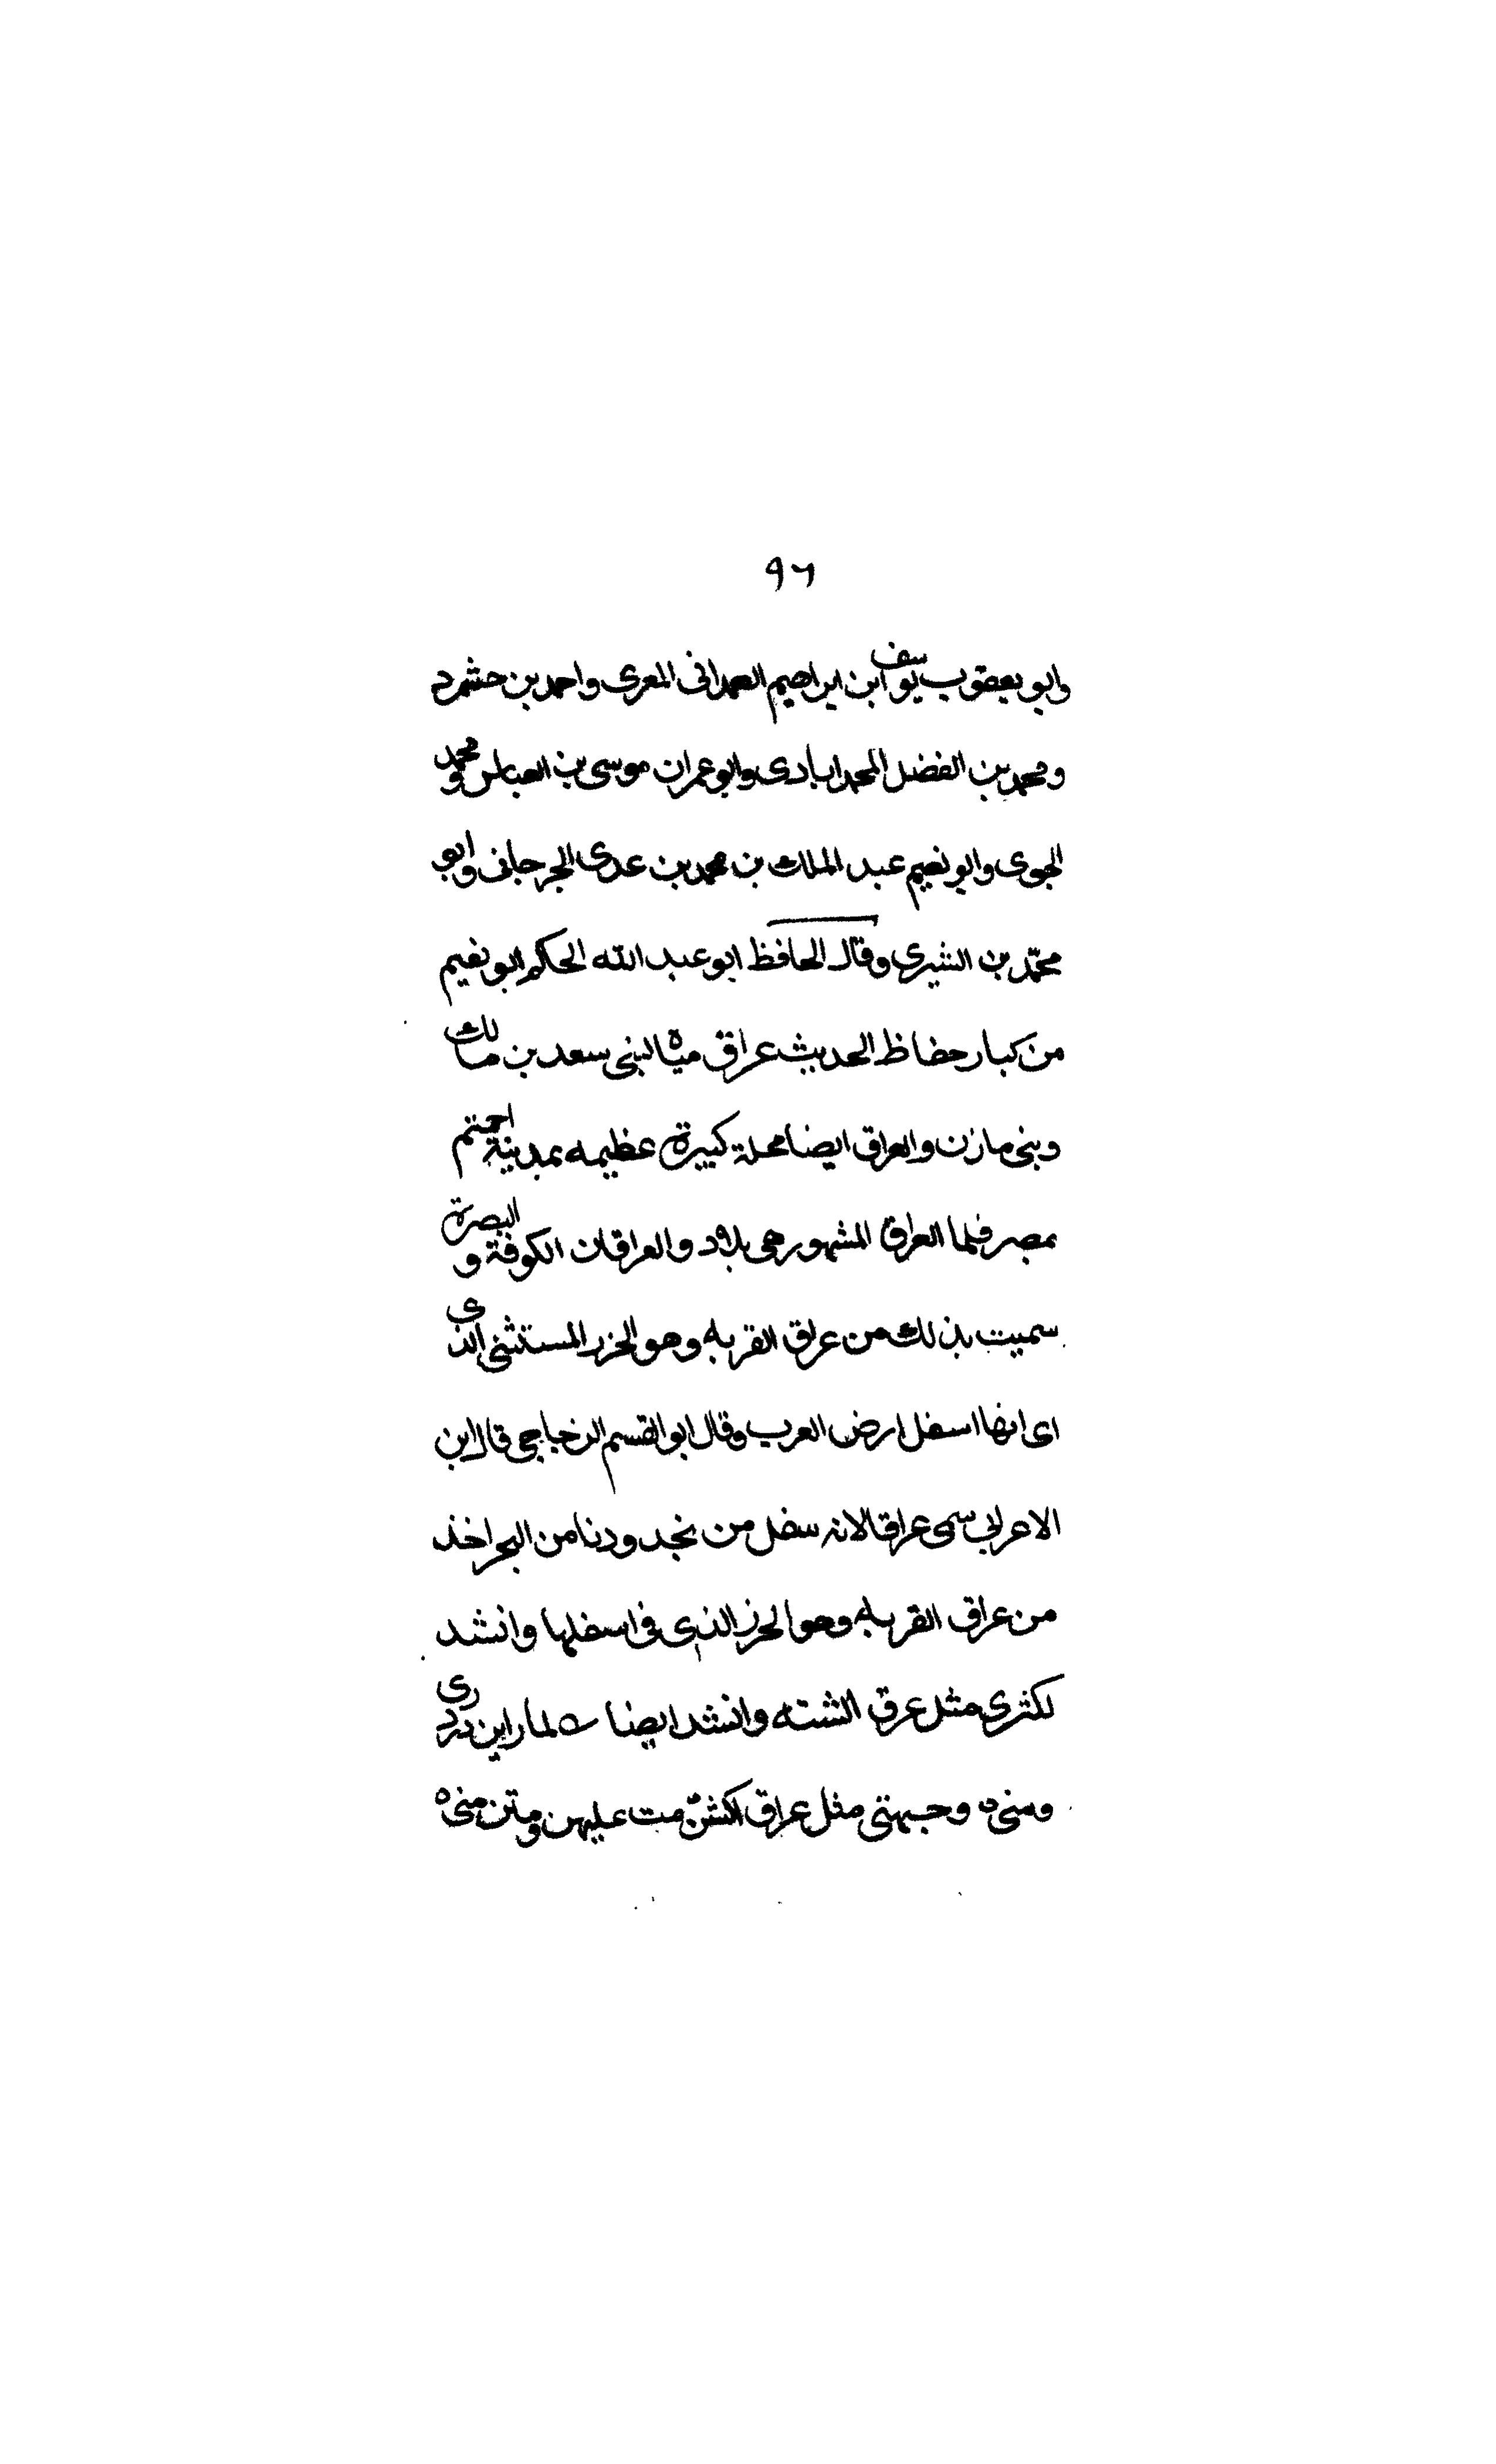 ٩٦
وابو يعقوب يوسف ابن ابراهيم الهمدانى المعرى واحمد بن حشمرد
ومحمد بن الفضل المحمدابادى وابو عمران موسى بن العباس ومحمد
الجوى وابو نعيم عبد الملك بن محمد بن عدى الجرجانى وابو
محمد بن الشيرى وقال الحافظ ابو عبد الله الحاكم ابو نعيم
من كبار حفاظ الحديث عراق مياه لبنى سعد بن مالك
وبنى مازن والعراق ايضا محلة كبيرة عظيمه بمدينة اخميم
بمصر فلما العراق المشهور هى بلاد والعراقان الكوفة والبصرة
سميت بذلك من عراق القربه وهو الخرز المستثنى الذى
اى انها اسفل ارض العرب وقال ابو القسم الزجاجى قال ابن
الاعرابى سمى عراقا لانه سفل من نجد ودنا من البحر اخذ
من عراق القربه وهو الخرز الذى فى اسفلها وانشد
لكثرى مثل عرق الشنه وانشد ايضا لمار ابن دردرى
وسنى وجبهتى مثل عراق الشن مت عليهن ومتن منى